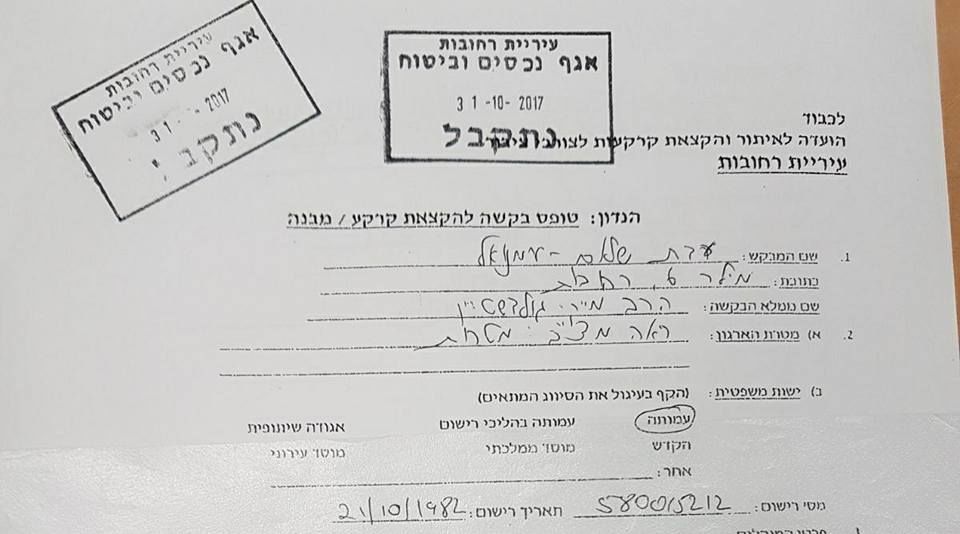 עיריית רחובות
אגף נכסים וביטוח
31 -10- 2017
נתקבל
עיריית רחובות
אגף נכסים וביטוח
31 - 2017
נתקב
לכבוד
הועדה לאיתור והקצאת קרקעות
עיריית רחובות
הנדון: טופס בקשה להקצאת קרקע / מבנה
1. שם המבקש: עדת שלום - עמנואל
כתובת: מילר 6, רחובות
שם ממלא הבקשה: הרב מיירי גולדשטיין
2. א) מטרת הארגון: ראה מצ"ב מטרות
ב) ישות משפטית: (הקף בעיגול את הסיווג המתאים)
עמותה עמותה בהליכי רישום אגודה שיתופית
הקדש מוסד ממלכתי מוסד עירוני
אחר:
מס' רישום: 580015212 תאריך רישום: 21/10/1982